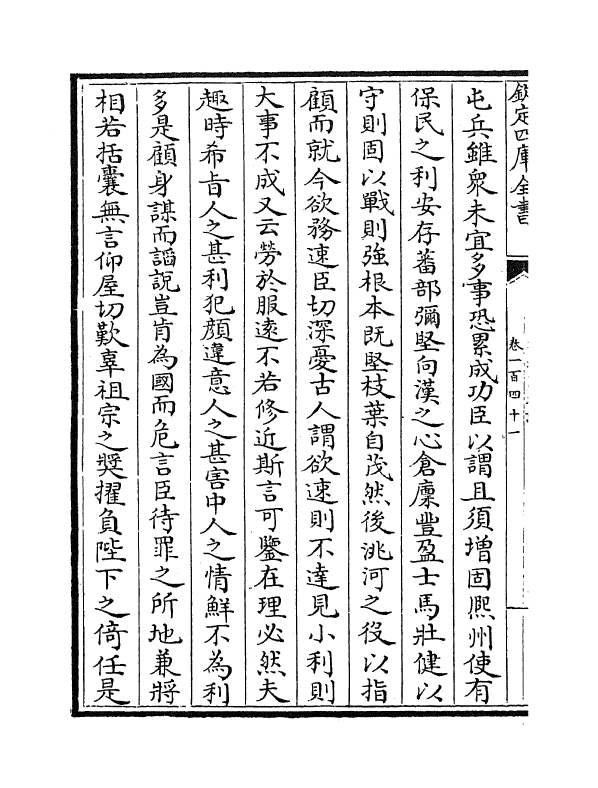 欽定四庫全書
卷一百四十一
屯兵雖衆未宜多事恐累成功臣以謂且須増固熈州使有
保民之利安存蕃部彌堅向漢之心倉廩豐盈士馬壯健以
守則固以戰則強根本既堅枝葉自茂然後洮河之役以指
顧而就今欲務速臣切深憂古人謂欲速則不達見小利則
大事不成又云勞於服逺不若修近斯言可鑒在理必然夫
趣時希旨人之甚利犯顔違意人之甚害中人之情鮮不為利
多是顧身謀而謟説豈肯為國而危言臣待罪之所地兼將
相若括囊無言仰屋切歎辜祖宗之奬擢負陛下之倚任是